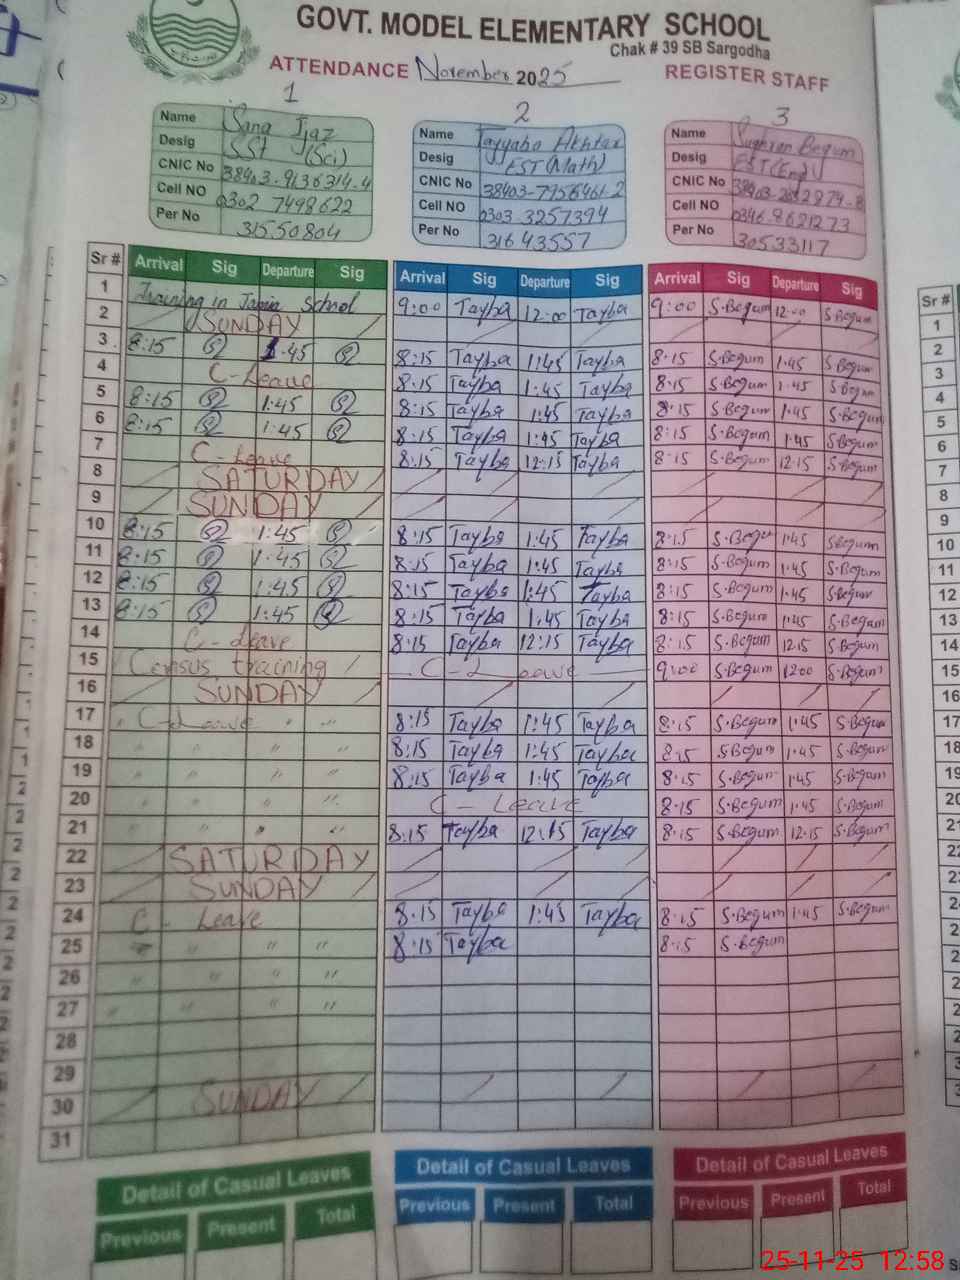 GOVT. MODEL ELEMENTARY SCHOOL
Chak # 39 SB Sargodha
ATTENDANCE November 2025 REGISTER STAFF
1 2 3
Name Sana Ijaz
Desig SST (Sci)
CNIC No 38403-9136314-4
Cell NO 0302 7498622
Per No 31550804
Name Tayyaba Akhtar
Desig EST (Math)
CNIC No 38403-7956461-2
Cell NO 0303 3257394
Per No 31643557
Name Sughran Begum
Desig EST (Eng)
CNIC No
Cell NO 0346 8621273
Per No 30533117
Sr # Arrival Sig Departure Sig Arrival Sig Departure Sig Arrival Sig Departure Sig Sr #
1 Training in School 9:00 Tayba 12:00 Tayba 9:00 S.Begum 12:00 S.Begum
2 SUNDAY
3 8:15 1:45 8:15 Tayba 1:45 Tayba 8:15 S.Begum 1:45 S.Begum
4 C-Leave 8:15 Tayba 1:45 Tayba 8:15 S.Begum 1:45 S.Begum
5 8:15 1:45 8:15 Tayba 1:45 Tayba 8:15 S.Begum 1:45 S.Begum
6 8:15 1:45 8:15 Tayba 1:45 Tayba 8:15 S.Begum 1:45 S.Begum
7 C-Leave 8:15 Tayba 12:15 Tayba 8:15 S.Begum 12:15 S.Begum
8 SATURDAY
9 SUNDAY
10 8:15 1:45 8:15 Tayba 1:45 Tayba 8:15 S.Begum 1:45 S.Begum
11 8:15 1:45 8:15 Tayba 1:45 Tayba 8:15 S.Begum 1:45 S.Begum
12 8:15 1:45 8:15 Tayba 1:45 Tayba 8:15 S.Begum 1:45 S.Begum
13 8:15 1:45 8:15 Tayba 1:45 Tayba 8:15 S.Begum 1:45 S.Begum
14 C-Leave 8:15 Tayba 12:15 Tayba 8:15 S.Begum 12:15 S.Begum
15 Census training C-Leave 9:00 S.Begum 12:00 S.Begum
16 SUNDAY
17 C-Leave " " 8:15 Tayba 1:45 Tayba 8:15 S.Begum 1:45 S.Begum
18 " " " " 8:15 Tayba 1:45 Tayba 8:15 S.Begum 1:45 S.Begum
19 " " " " 8:15 Tayba 1:45 Tayba 8:15 S.Begum 1:45 S.Begum
20 " " " " C-Leave 8:15 S.Begum 1:45 S.Begum
21 " " " " 8:15 Tayba 12:15 Tayba 8:15 S.Begum 12:15 S.Begum
22 SATURDAY
23 SUNDAY
24 C-Leave 8:15 Tayba 1:45 Tayba 8:15 S.Begum 1:45 S.Begum
25 " " " 8:15 Tayba 8:15 S.Begum
26 " " " "
27 " " " "
28
29
30 SUNDAY
31
Detail of Casual Leaves Detail of Casual Leaves Detail of Casual Leaves
Previous Present Total Previous Present Total Previous Present Total
25-11-25 12:58